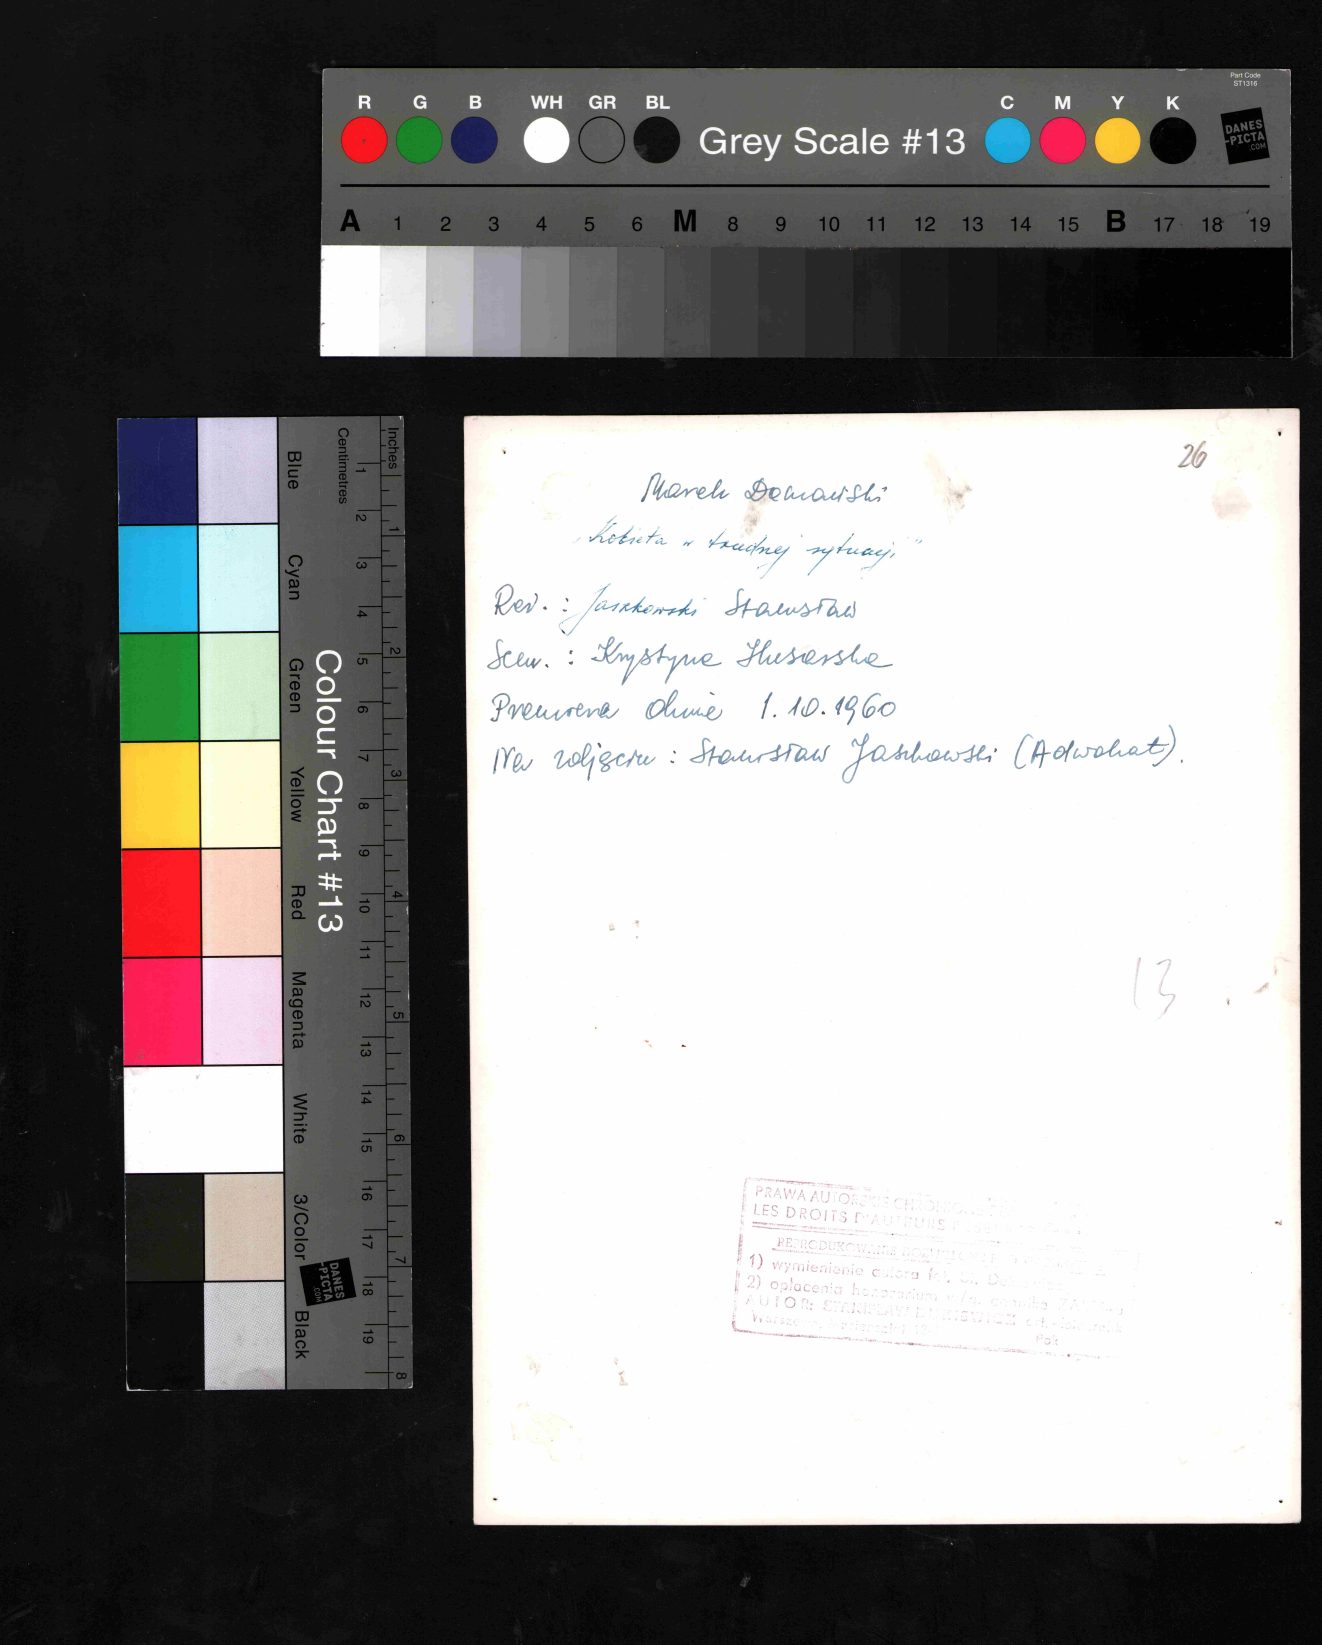 Part Code
ST1316
R G B WH GR BL
Grey Scale #13
C M Y K
DANES
-PICTA
.COM
A 1 2 3 4 5 6 M 8 9 10 11 12 13 14 15 B 17 18 19
Colour Chart #13
Blue
Cyan
Green
Yellow
Red
Magenta
White
3/Color
Black
Centimetres
1 2 3 4 5 6 7 8 9 10 11 12 13 14 15 16 17 18 19
Inches
1 2 3 4 5 6 7 8
DANES
-PICTA
.COM
26
Marek Domański
„Kobieta w trudnej sytuacji"
Reż. : Jaszkowski Stanisław
Scen. : Krystyna Husarska
Premiera dnia 1.10.1960
Na zdjęciu : Stanisław Jaszkowski (Adwokat).
13
PRAWA AUTORSKIE
LES DROITS D'AUTEURS
REPRODUKOWANIE
1) wymienienie autora fot.
2) opłacenia honorarium
AUTOR: STANISŁAW
Warszawa,